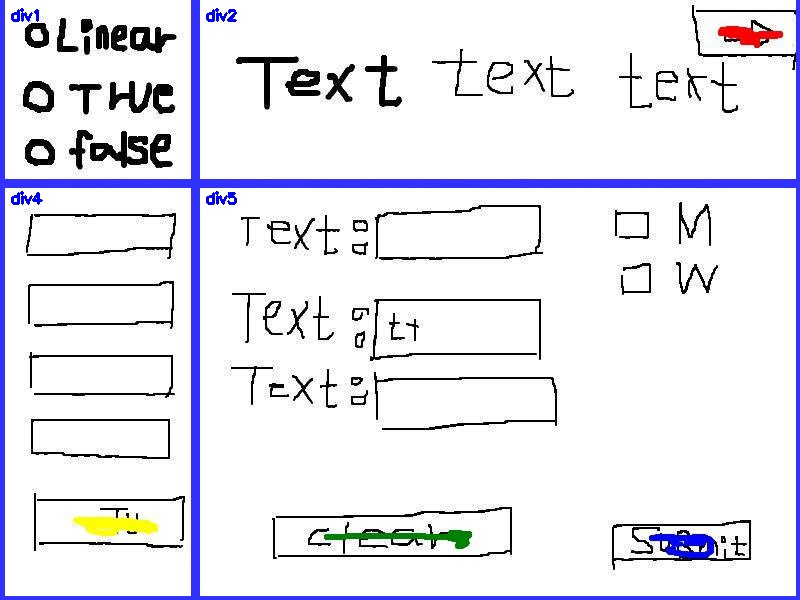 div1
Linear
TrUe
false
div2
Text text text
div4
Tu
div5
Text:
M
W
Text: tt
Text:
clear
Submit